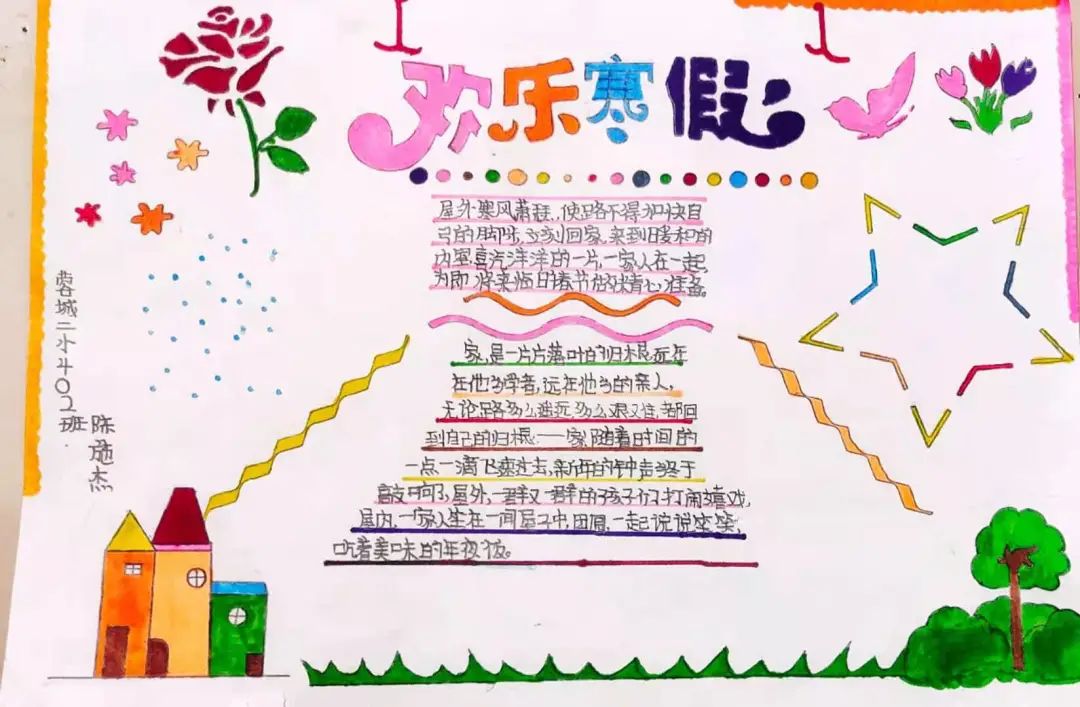 欢乐寒假
屋外寒风萧瑟,使路不得加快自
己的脚步,立刻回家,来到暖和的
内室喜气洋洋的一片,一家人在一起,
为即将来临的春节做精心准备。
家,是一片片落叶的归根,远在
在他乡学者,远在他乡的亲人,
无论路多么遥远,多么艰又难,都回
到自己的归根——家,随着时间的
一点一滴飞速过去,新年的钟声终于
敲响了,屋外,一群又一群的孩子们打闹嬉戏,
屋内,一家人坐在一间屋子中,团圆,一起说说笑笑,
吃着美味的年夜饭。
蓉城二小402班.
陈施杰